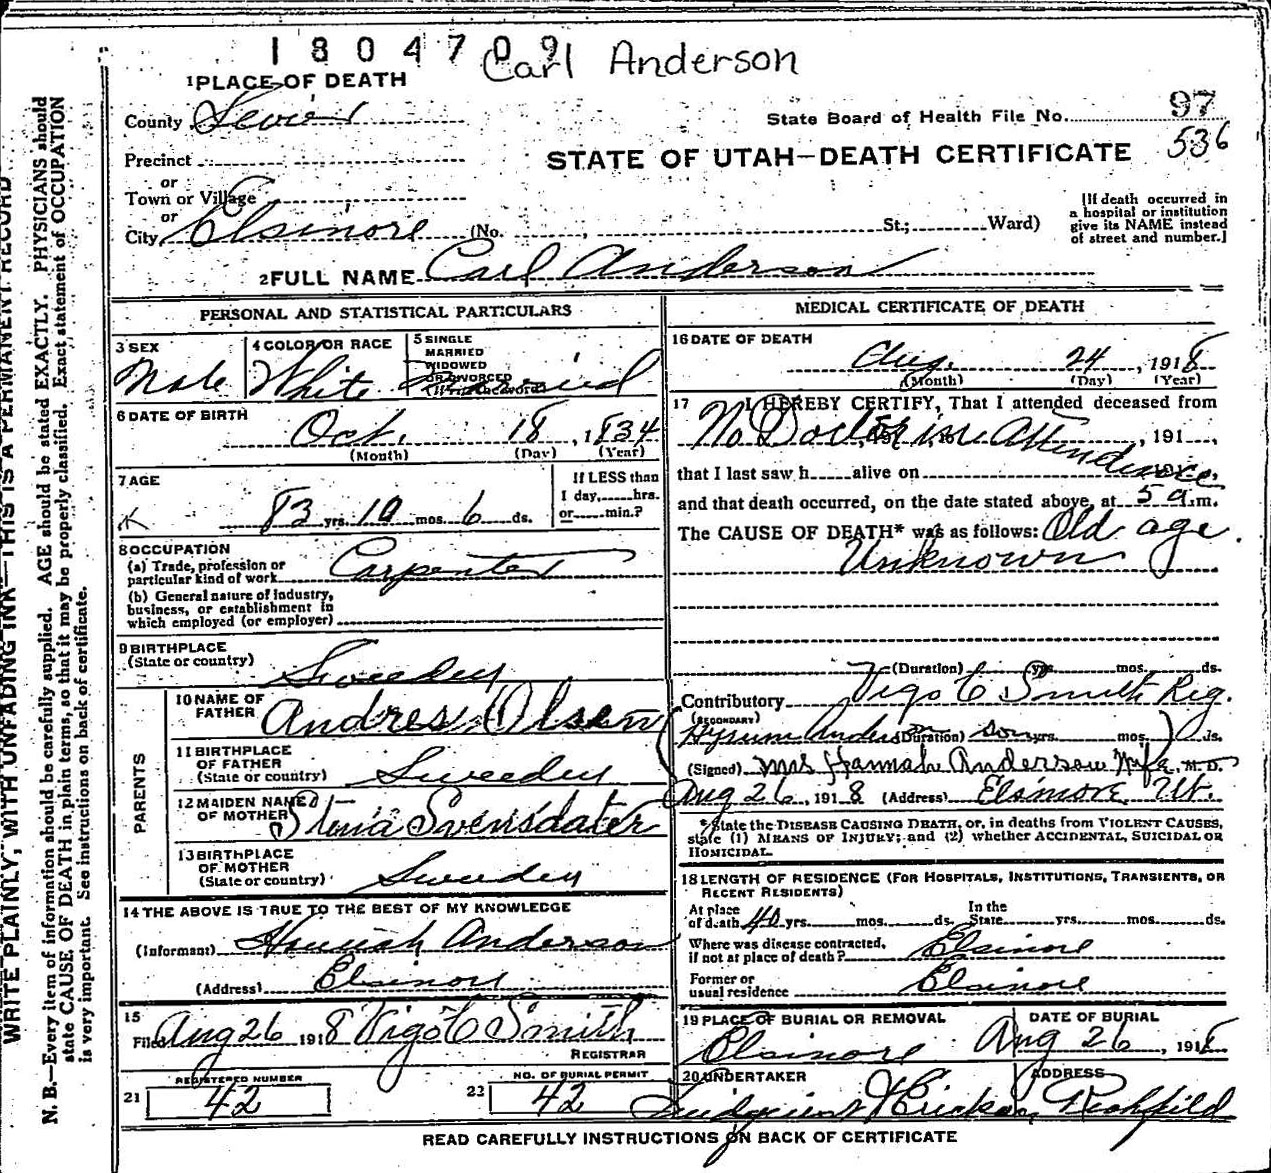 1804709
Carl Anderson
1 PLACE OF DEATH
County Sevier
State Board of Health File No. 97
536
Precinct
or
Town or Village
or
City Elsinore (No. , St.; Ward)
STATE OF UTAH—DEATH CERTIFICATE
[If death occurred in
a hospital or institution
give its NAME instead
of street and number.]
2 FULL NAME Carl Anderson
PERSONAL AND STATISTICAL PARTICULARS
3 SEX
Male
4 COLOR OR RACE
White
5 SINGLE
MARRIED
WIDOWED
OR DIVORCED
(Write the word)
Married
6 DATE OF BIRTH
Oct. 18, 1834
(Month) (Day) (Year)
7 AGE
83 yrs. 10 mos. 6 ds.
If LESS than
1 day, hrs.
or min.?
8 OCCUPATION
(a) Trade, profession or
particular kind of work Carpenter
(b) General nature of industry,
business, or establishment in
which employed (or employer)
9 BIRTHPLACE
(State or country) Sweden
PARENTS
10 NAME OF
FATHER Andres Olsen
11 BIRTHPLACE
OF FATHER
(State or country) Sweden
12 MAIDEN NAME
OF MOTHER Stina Svensdater
13 BIRTHPLACE
OF MOTHER
(State or country) Sweden
14 THE ABOVE IS TRUE TO THE BEST OF MY KNOWLEDGE
(Informant) Hannah Anderson
(Address) Elsinore
15
Filed Aug 26 1918 Vigo C Smith
REGISTRAR
21 REGISTERED NUMBER
42
22 NO. OF BURIAL PERMIT
42
MEDICAL CERTIFICATE OF DEATH
16 DATE OF DEATH
Aug. 24, 1918
(Month) (Day) (Year)
17 I HEREBY CERTIFY, That I attended deceased from
No Doctor in Attendence, 191 ,
that I last saw h alive on
and that death occurred, on the date stated above, at 5 a.m.
The CAUSE OF DEATH* was as follows: Old age.
Unknown
(Duration) yrs. mos. ds.
Contributory Vigo C Smith Reg.
(SECONDARY)
Hyrum Anderson (Duration) son yrs. mos. ds.
(Signed) Mrs Hannah Anderson Wife M.D.
Aug 26, 1918 (Address) Elsinore Ut.
*State the DISEASE CAUSING DEATH, or, in deaths from VIOLENT CAUSES,
state (1) MEANS OF INJURY; and (2) whether ACCIDENTAL, SUICIDAL OR
HOMICIDAL.
18 LENGTH OF RESIDENCE (FOR HOSPITALS, INSTITUTIONS, TRANSIENTS, OR
RECENT RESIDENTS)
At place In the
of death 40 yrs. mos. ds. State yrs. mos. ds.
Where was disease contracted,
if not at place of death? Elsinore
Former or
usual residence Elsinore
19 PLACE OF BURIAL OR REMOVAL
Elsinore
DATE OF BURIAL
Aug 26, 1918
20 UNDERTAKER
ADDRESS
Richfield
READ CAREFULLY INSTRUCTIONS ON BACK OF CERTIFICATE
WRITE PLAINLY, WITH UNFADING INK—THIS IS A PERMANENT RECORD
N. B.—Every item of information should be carefully supplied. AGE should be stated EXACTLY. PHYSICIANS should
state CAUSE OF DEATH in plain terms, so that it may be properly classified. Exact statement of OCCUPATION
is very important. See instructions on back of certificate.